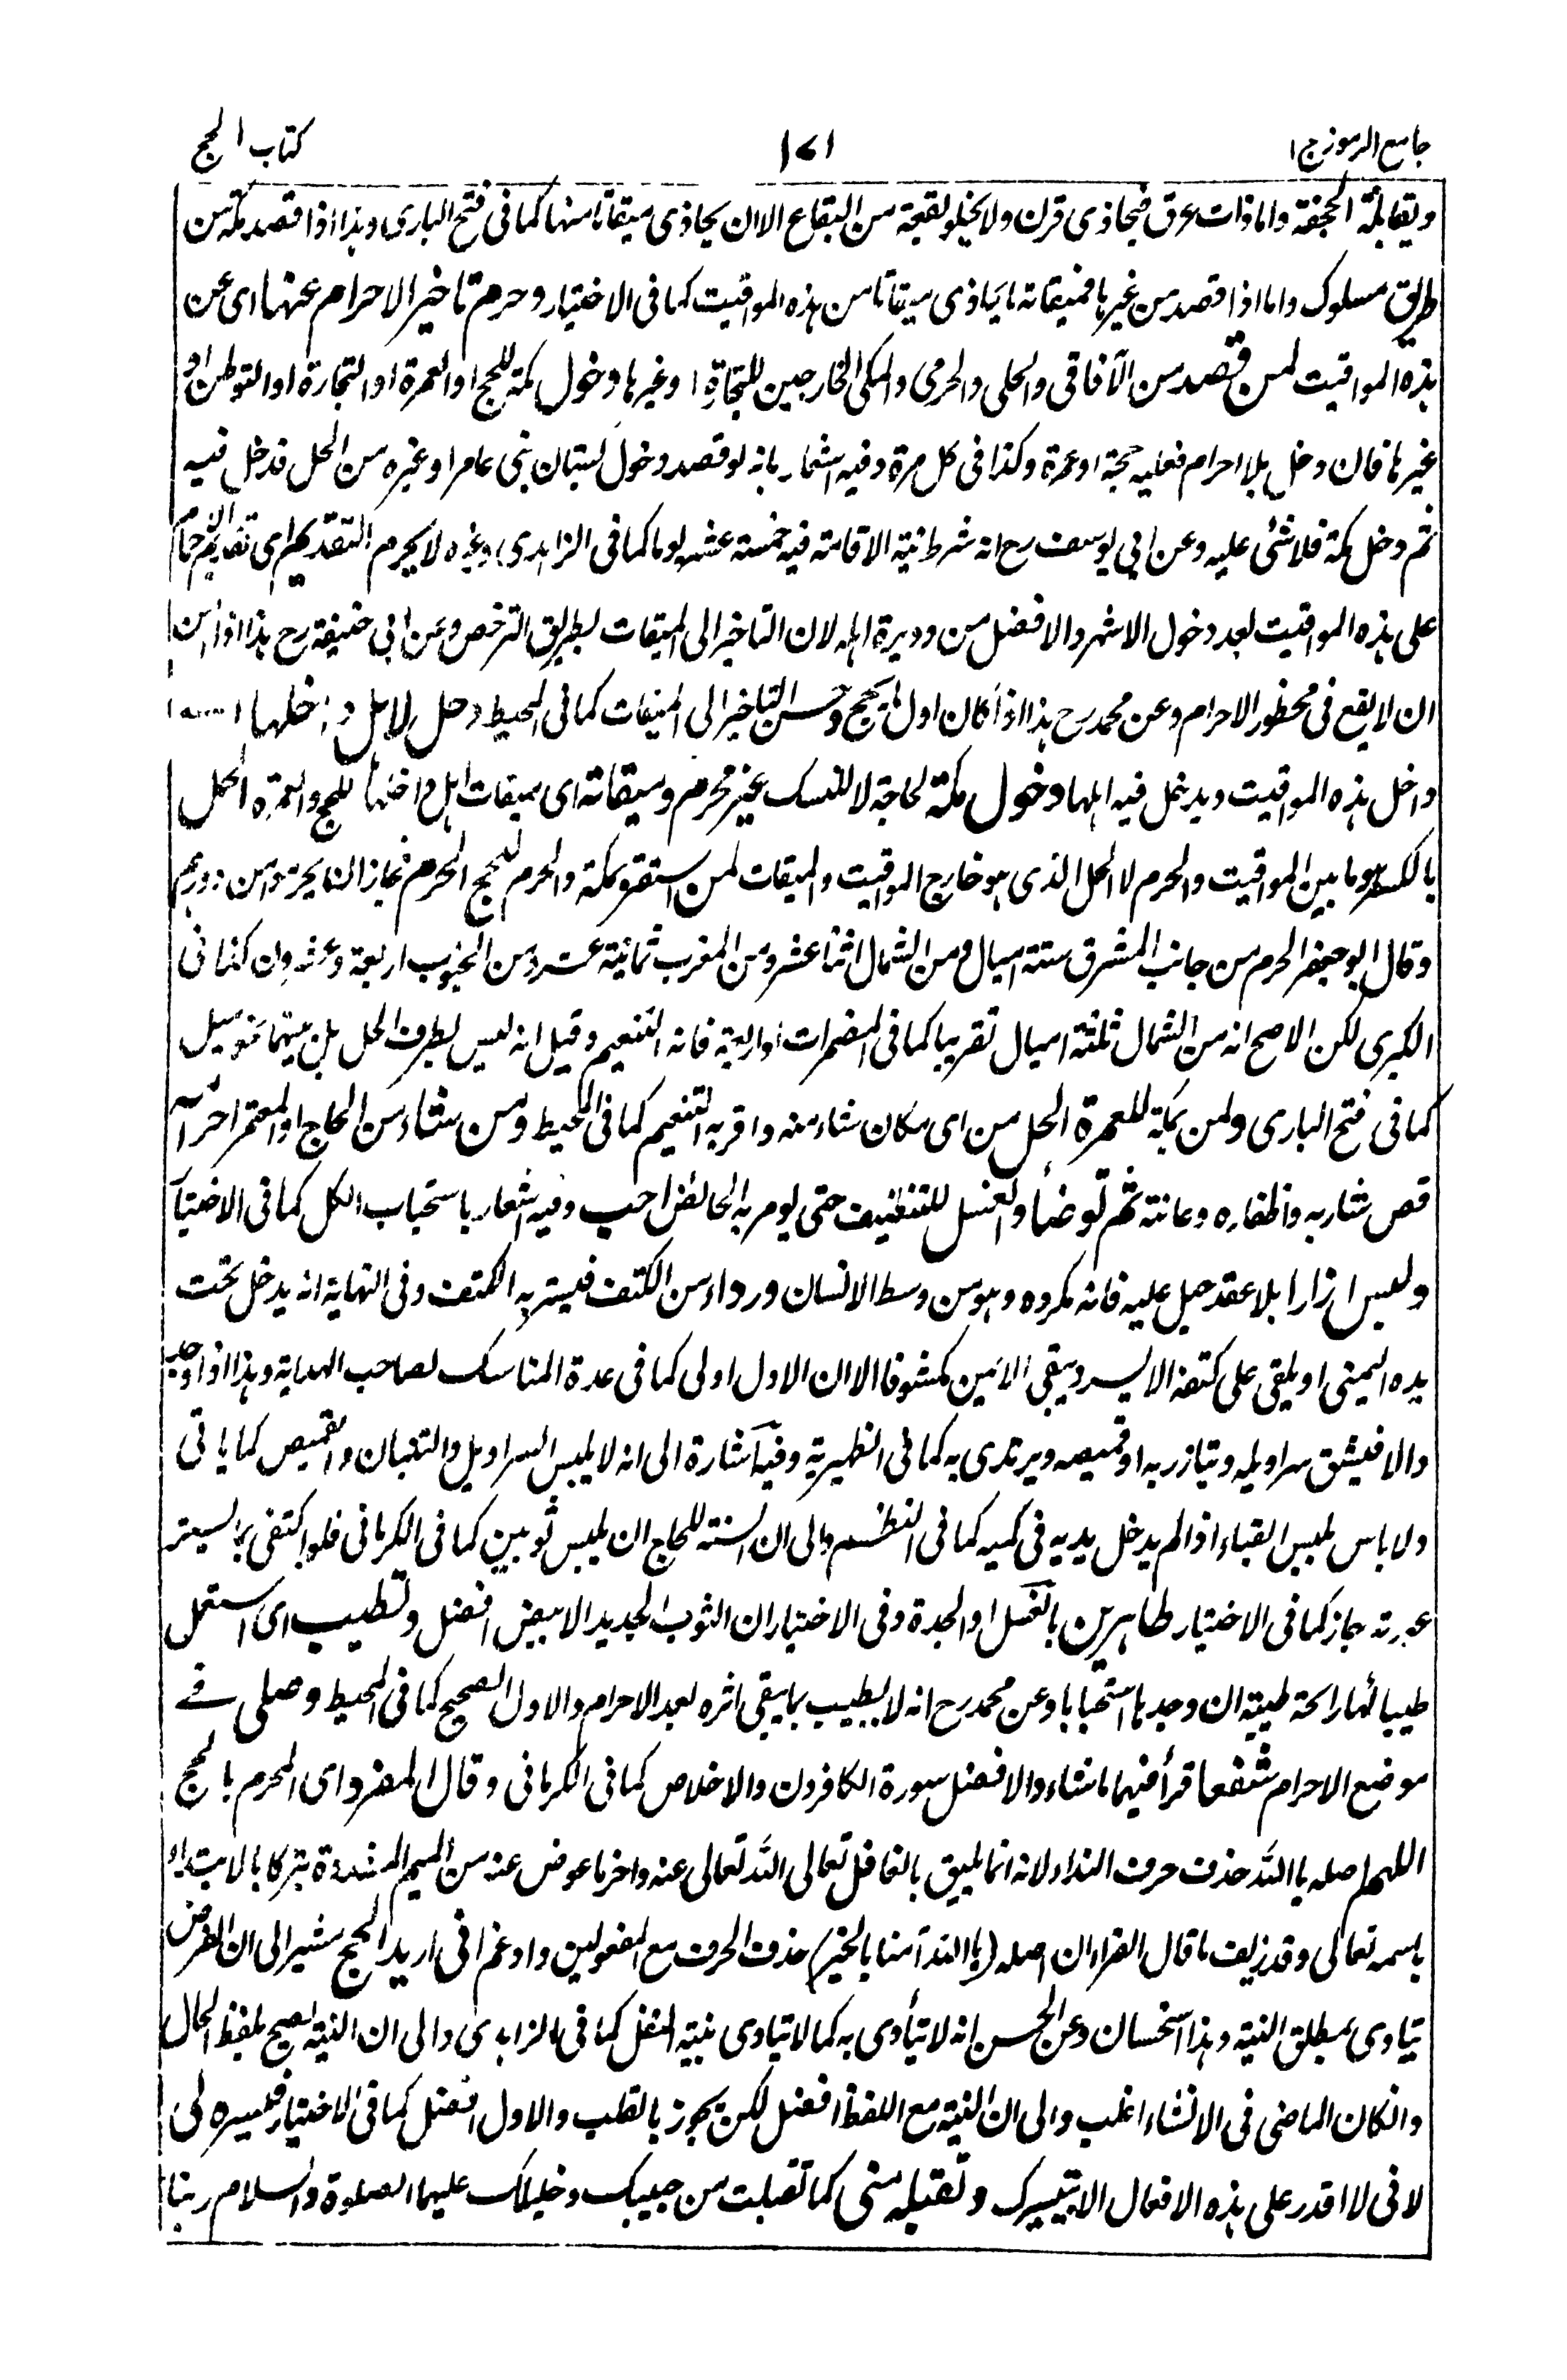 جامع الرموز ج ١
١٧١
كتاب الحج
ويقابلة الجحفة واما ذات عرق فيحاذى قرن ولا يخلو بقعة من البقاع الا ان يحاذى ميقاتا منها كما فى فتح البارى وهذا اذا قصد مكة من
طريق مسلوك واما اذا قصد من غيرها فميقاته ما يحاذى ميقاتا من هذه المواقيت كما فى الاختيار وحرم تاخير الاحرام عنها اى عن
هذه المواقيت لمن قصد من الآفاقى والحلى والحرمى والمكى الخارجين للتجارة او غيرها دخول مكة للحج او العمرة او التجارة او التوطن او
غيرها فان دخل بلا احرام فعليه حجة او عمرة وكذا فى كل مرة وفيه اشعار بانه لو قصد دخول بستان بنى عامر او غيره من الحل فدخل فيه
ثم دخل مكة فلا شئ عليه وعن ابي يوسف رح انه شرط نية الاقامة فيه خمسة عشر يوما كما فى الزاهدى وغيره لا يحرم التقديم اى تقديم الاحرام
على هذه المواقيت بعد دخول الاشهر والافضل من دويرة اهله لان التاخير الى الميقات بطريق الترخص وعن ابى حنيفة رح هذا اذا امن
ان لا يقع فى محظور الاحرام وعن محمد رح هذا اذا كان اول ما يحج وحسن التاخير الى الميقات كما فى المحيط وحل لاهل داخلها
داخل هذه المواقيت ويدخل فيه اهلها دخول مكة لحاجة لا للنسك غير محرم وميقاته اى ميقات اهل داخلها للحج والعمرة الحل
بالكسر وهو ما بين المواقيت والحرم لا الحل الذى هو خارج المواقيت والميقات لمن استقر بمكة والحرم للحج الحرم فجاز ان يحرموا من دورهم
وقال ابو جعفر الحرم من جانب المشرق ستة اميال ومن الشمال اثنا عشر ومن المغرب ثمانية عشر ومن الجنوب اربعة وعشرون كذا فى
الكبرى لكن الاصح انه من الشمال ثلثة اميال تقريبا كما فى المضمرات او اربعة فانه التنعيم وقيل انه ليس بطرف الحل بل بينهما نحو ميل
كما فى فتح البارى ولمن بمكة للعمرة الحل من اى مكان شاء منه واقربه التنعيم كما فى المحيط ومن شاء من الحاج او المعتمر احرامه
قص شاربه واظفاره وعانته ثم توضأ والغسل للتنظيف حتى يومر به الحائض احب وفيه اشعار باستحباب الكل كما فى الاختيار
ولبس ازارا بلا عقد حبل عليه فانه مكروه وهو من وسط الانسان ورداء من الكتف فيستر به الكتف وفى النهاية انه يدخل تحت
يده اليمنى او يلقى على كتفه الايسر ويبقى الايمن مكشوفا الا ان الاول اولى كما فى عدة المناسك لصاحب الهداية وهذا اذا وجد
والا فيشق سراويله ويتازر به او قميصه ويرتدى به كما فى الظهيرية وفيه اشارة الى انه لا يلبس السراويل والتبان والقميص كما ياتى
ولا باس بلبس القباء اذا لم يدخل يديه فى كميه كما فى النظم والى ان السنة للحاج ان يلبس ثوبين كما فى الكرمانى فلو اكتفى بما يستر
عورته جاز كما فى الاختيار طاهرين بالغسل او الجدة وفى الاختيار ان الثوب الجديد الابيض افضل وتطيب اى استعمل
طيبا لها رائحة طيبة ان وجدها استحبابا وعن محمد رح انه لا يطيب بما يبقى اثره بعد الاحرام والاول الصحيح كما فى المحيط وصلى فى
موضع الاحرام شفعا قرأ فيهما ما شاء والافضل سورة الكافرون والاخلاص كما فى الكرمانى وقال المفرد اى المحرم بالحج
اللهم اصله يا الله حذفت حرف النداء لانه انما يليق بالغافل تعالى الله تعالى عنه واخر ما عوض عنه من الميم المشددة تبركا بالابتداء
باسمه تعالى وقد زيف ما قال الفراء ان اصله (يا الله آمنا بالخير) حذف الحرف مع المفعولين وادغم انى اريد الحج مشير الى ان الفرض
يتادى بمطلق النية وهذا استحسان وعن الحسن انه لا يتأدى به كما لا يتادى بنية النفل كما فى الزاهدى والى ان النية تصح بلفظ الحال
وانكان الماضى فى الانشاء اغلب والى ان النية مع اللفظ افضل لكن يجوز بالقلب والاول افضل كما فى الاختيار فيسره لى
لانى لا اقدر على هذه الافعال الا بتيسيرك وتقبله منى كما تقبلت من حبيبك وخليلك عليهما الصلوة والسلام ربنا